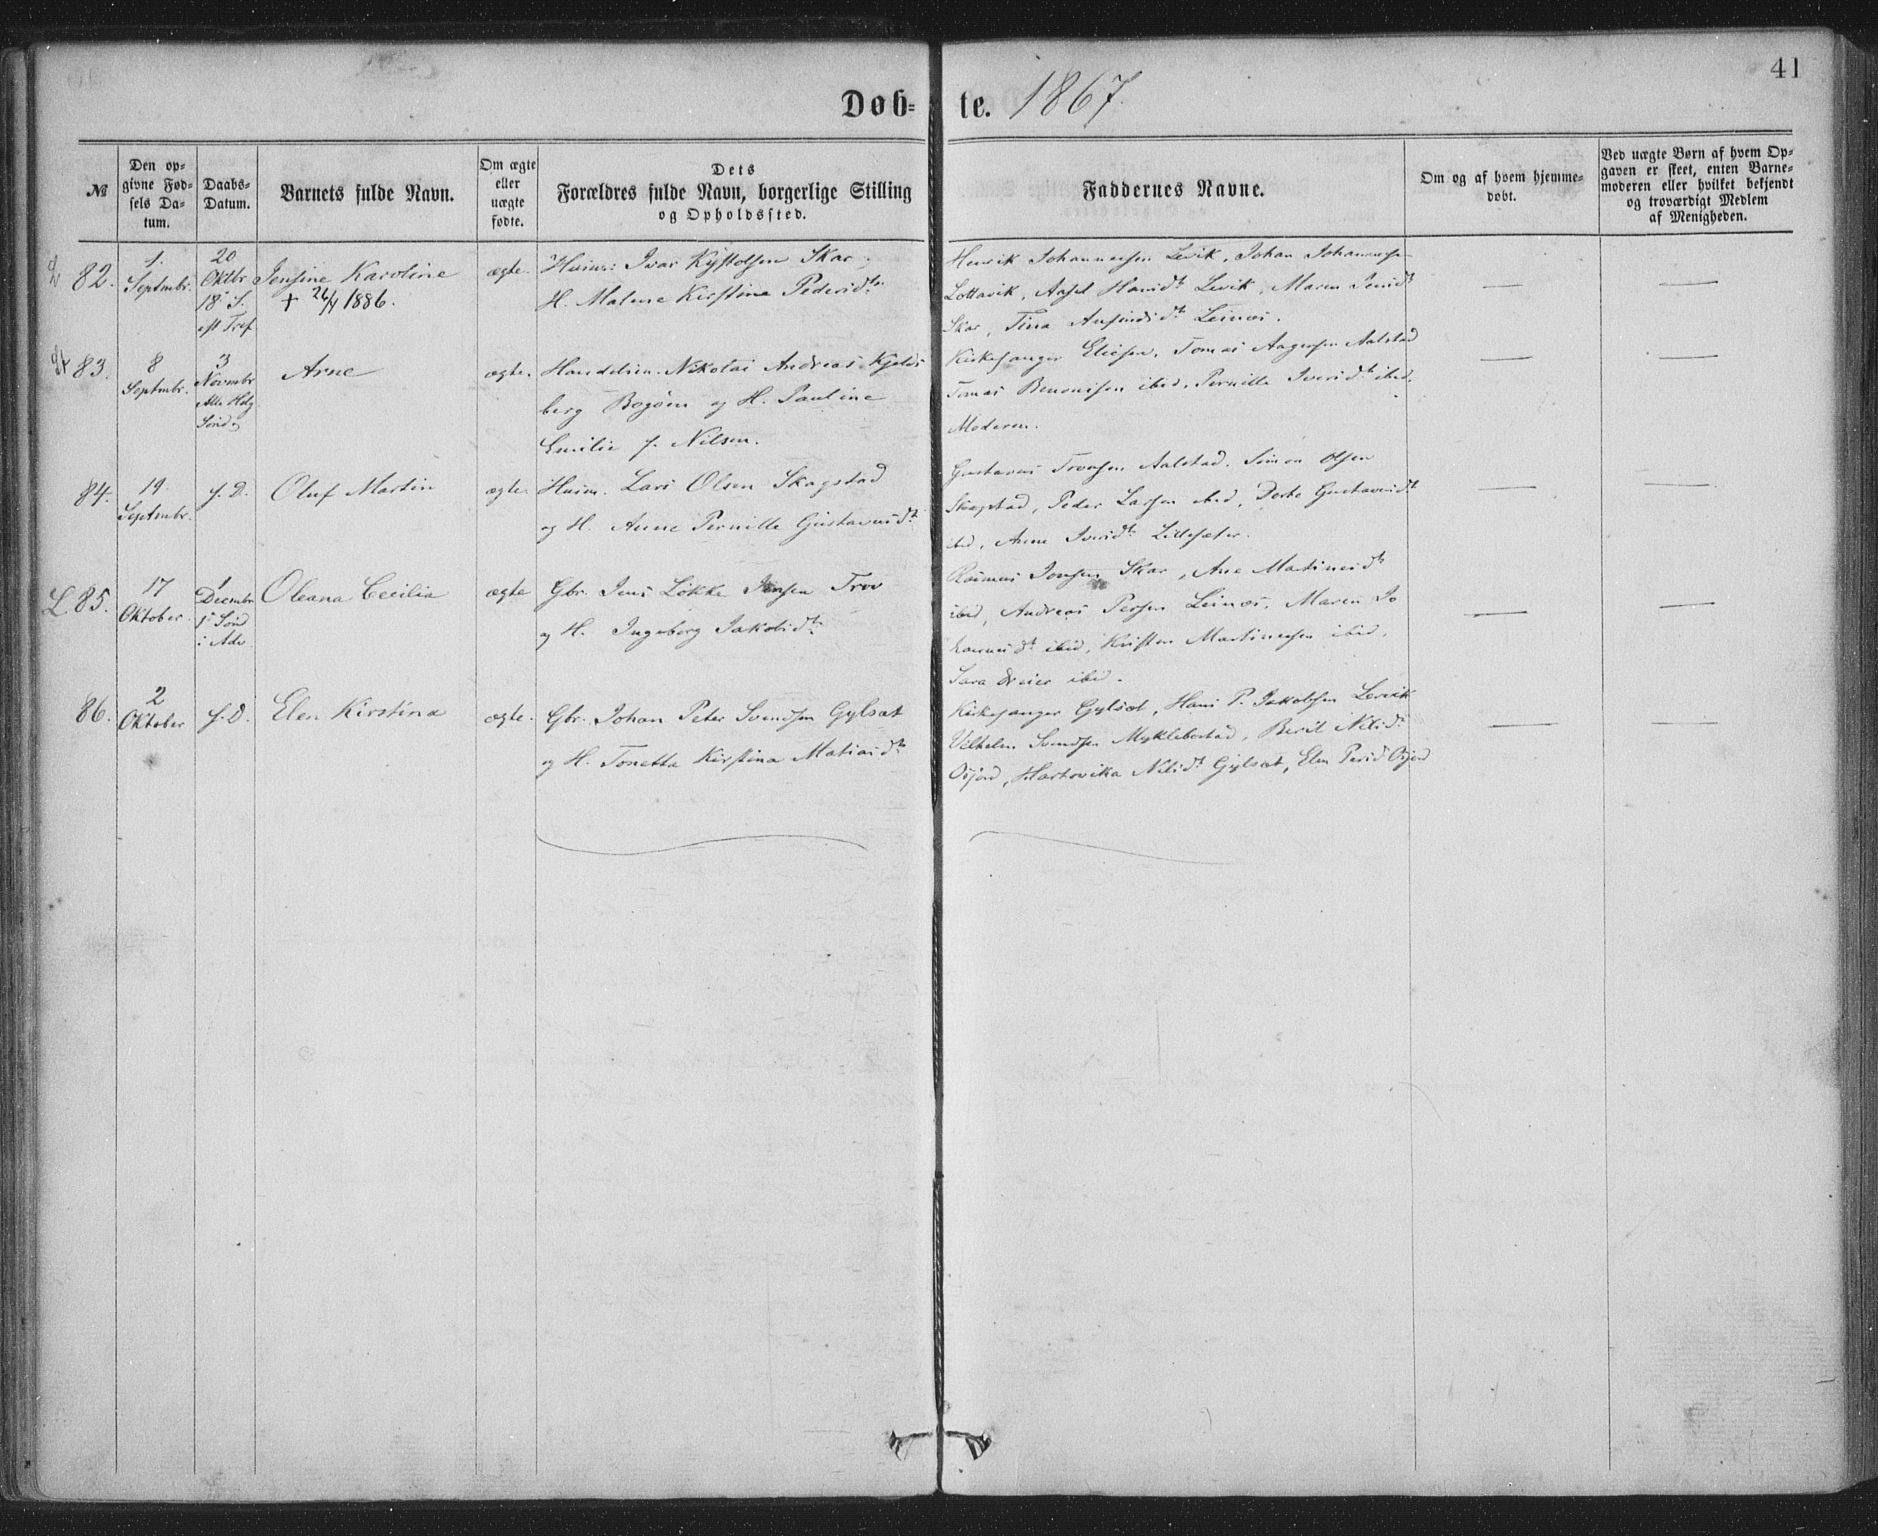 41
Døb= te. 1867.
№
Den op=
givne Fød=
sels Da=
tum.
Daabs=
Datum.
Barnets fulde Navn.
Om ægte
eller
uægte
fødte.
Dets
Forældres fulde Navn, borgerlige Stilling
og Opholdssted.
Faddernes Navne.
Om og af hvem hjemme=
døbt.
Ved uægte Børn af hvem Op=
gaven er skeet, enten Barne=
moderen eller hvilket bekjendt
og troværdigt Medlem
af Menigheden.
82.
1.
Septmbr.
20
Oktbr
18 S.
eft Tref
Jensine Karoline
+ 26/4 1886.
ægte.
Husm: Ivar Kystolsen Skar,
H. Malene Kirstine Pedersdtr
Henrik Johannessen Levik, Johan Johannesse
Lottavik, Axel Hansdt Levik, Maren Jensdt
Skar, Tina Ansindsdt Leinæs.
83.
8
Septmbr.
3
Novmbr
Alle Helg
Sönd.
Arne
ægte.
Handelsm. Nikolai Andreas Kjelds
berg Bogöen og H. Pauline
Emilie f. Nilsen.
Kirkesanger Eliesen, Tomas Aagesen Aalstad
Tomas Benonisen ibid, Pernille Iversdt ibid,
Moderen.
84.
19.
Septmbr.
s. D.
Oluf Martin
ægte.
Husm. Lars Olsen Skagstad
og H. Anne Pernille Gustavusdt
Gustavus Tronsen Aalstad, Simon Olsen
Skagstad, Peder Larsen ibid, Dorte Gustavusdt
ibid, Anne Iversdt Lillesæter.
L 85.
17
Oktober
1
Decembr
1 Sönd
i Adv
Oleana Cecilia
ægte
Gbr. Jens Lökke Jensen Trov
og H. Ingeborg Jakobsdtr
Rasmus Jonsen Skar, Ane Martinusdt
ibid, Andreas Persen Leinæs, Maren Jo
hannesdt ibid, Kristen Martinussen ibid,
Sara Dreier ibid.
86.
2
Oktober
s. D.
Elen Kirstina
ægte.
Gbr. Johan Peter Svendsen Gylsæt
og H. Tonetta Kirstina Matiasdtr
Kirkesanger Gylsæt, Hans P. Jakobsen Lervik
Vilhelm Svendsen Myklebostad, Berit Nilsdt
Osjord, Hartvika Nilsdt Gylsæt, Elen Persdt Osjord